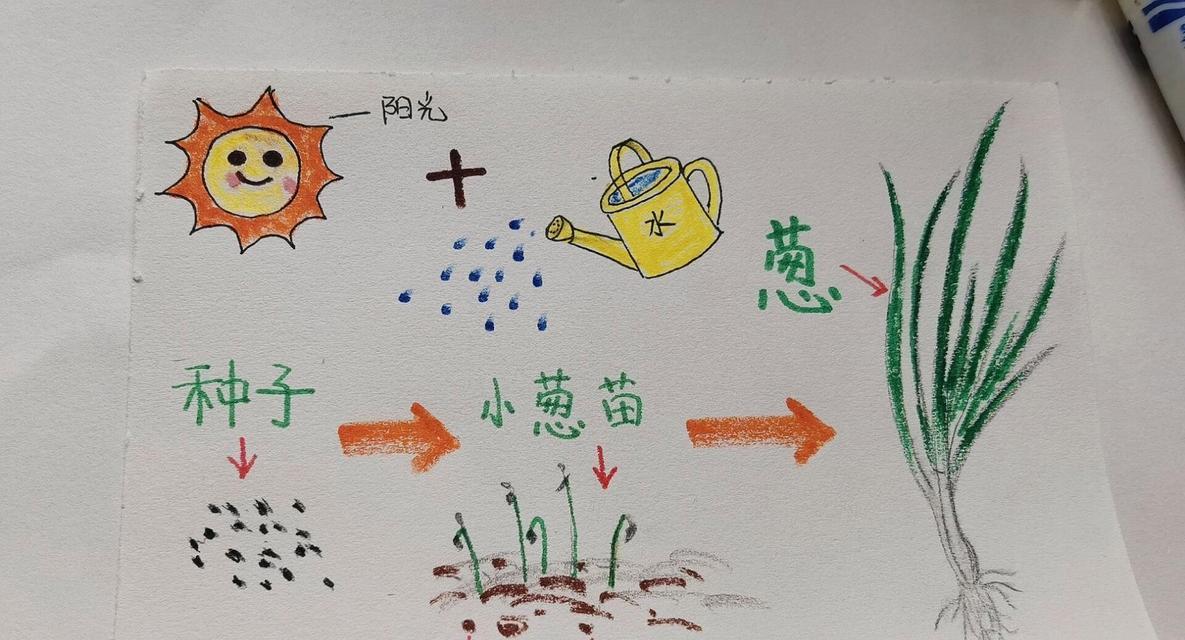 阳光
水
葱
种子
小葱苗